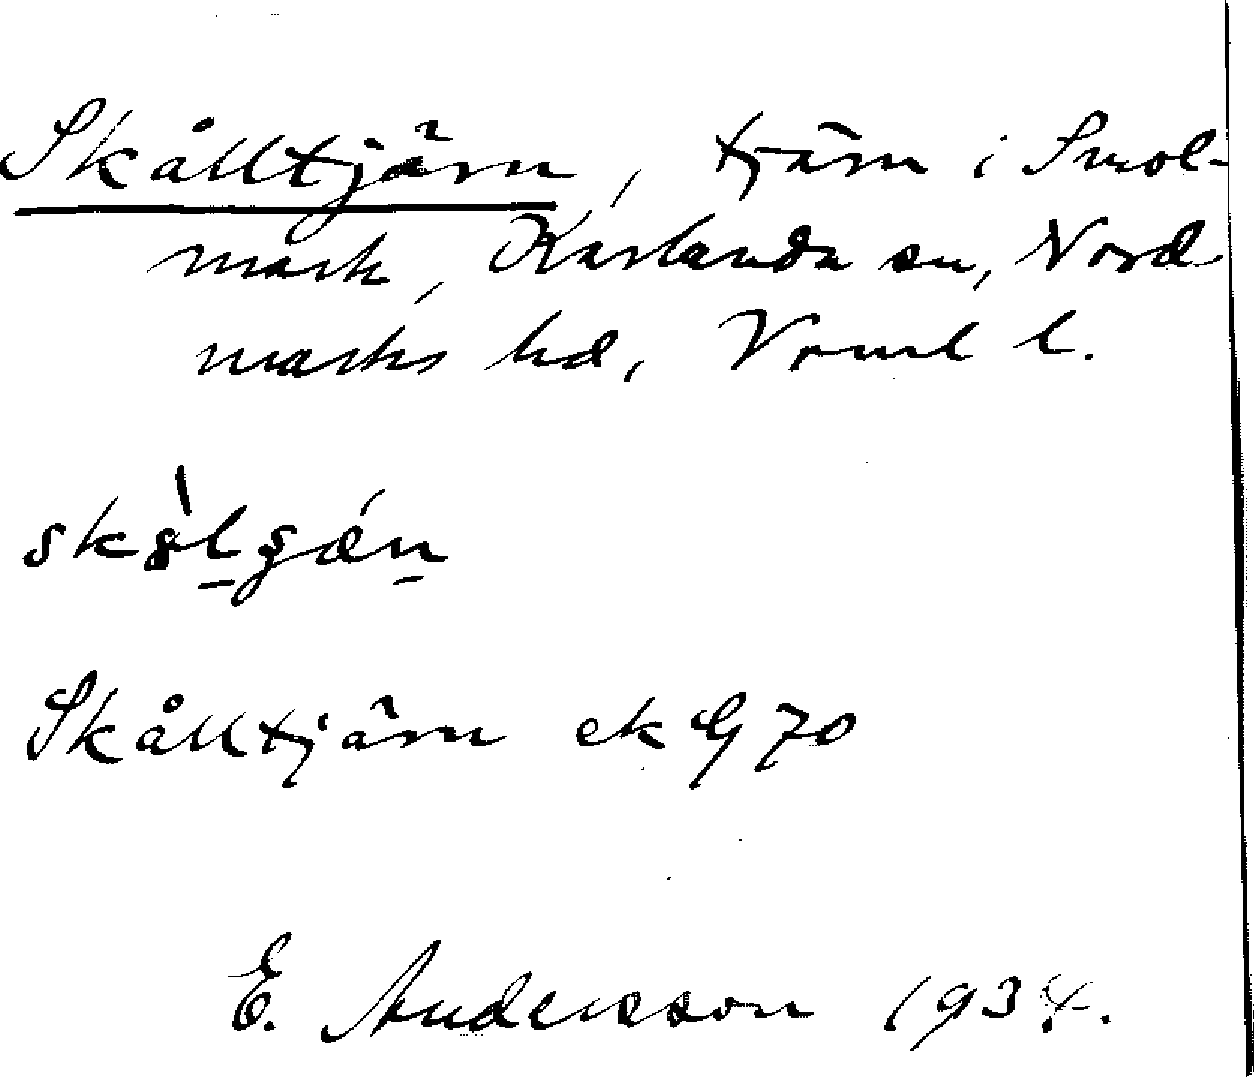 Skålltjärn, tjärn i Smol-
mark, Karlanda sn, Nord
marks hd, Vrml l.
Skålltjärn ek G 70
E. Andersson 1934.